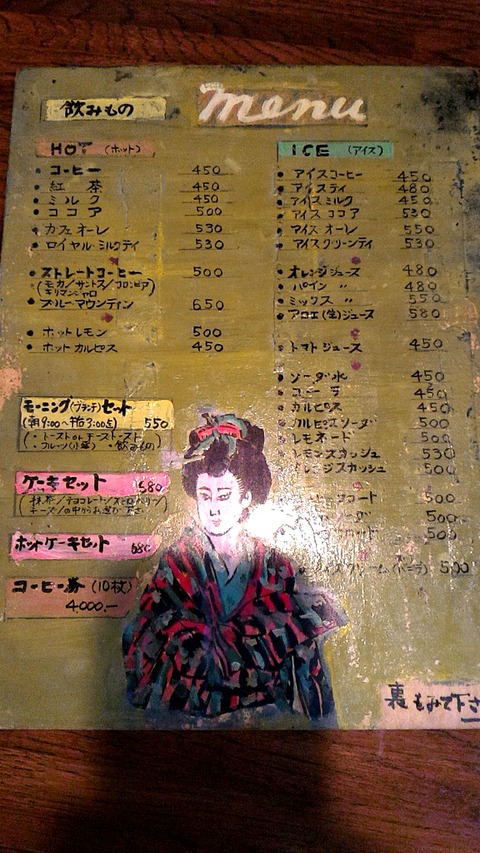 飲みもの
menu
HOT (ホット)
・コーヒー 450
・紅 茶 450
・ミルク 450
・ココア 500
・カフェオーレ 530
・ロイヤルミルクティ 530
・ストレートコーヒー 500
(モカ/サントス/コロンビア
キリマンジャロ)
・ブルーマウンテン 650
・ホットレモン 500
・ホットカルピス 450
モーニング(ブランチ)セット
(朝9:00〜午后3:00迄) 550
(・トーストorチーズトースト
・フルーツ(小草) ・飲みもの)
ケーキセット 580
チーズ/の中からお選び下さい
ホットケーキセット 680
コーヒー券 (10枚)
4000,—
ICE (アイス)
・アイスコーヒー 450
・アイスティ 480
・アイスミルク 450
・アイスココア 530
・アイスオーレ 550
・アイスグリーンティ 530
・オレンジジュース 480
・パイン 〃 480
・ミックス 〃 550
・アロエ(生)ジュース 580
・トマトジュース 450
・ソーダ水 450
・コーラ 450
・カルピス 450
カルピスソーダ 500
レモネード 500
レモンスカッシュ 530
レンジスカッシュ 500
フロート 500
500
500
アイスクリーム(バニラ) 500
裏もみて下さ